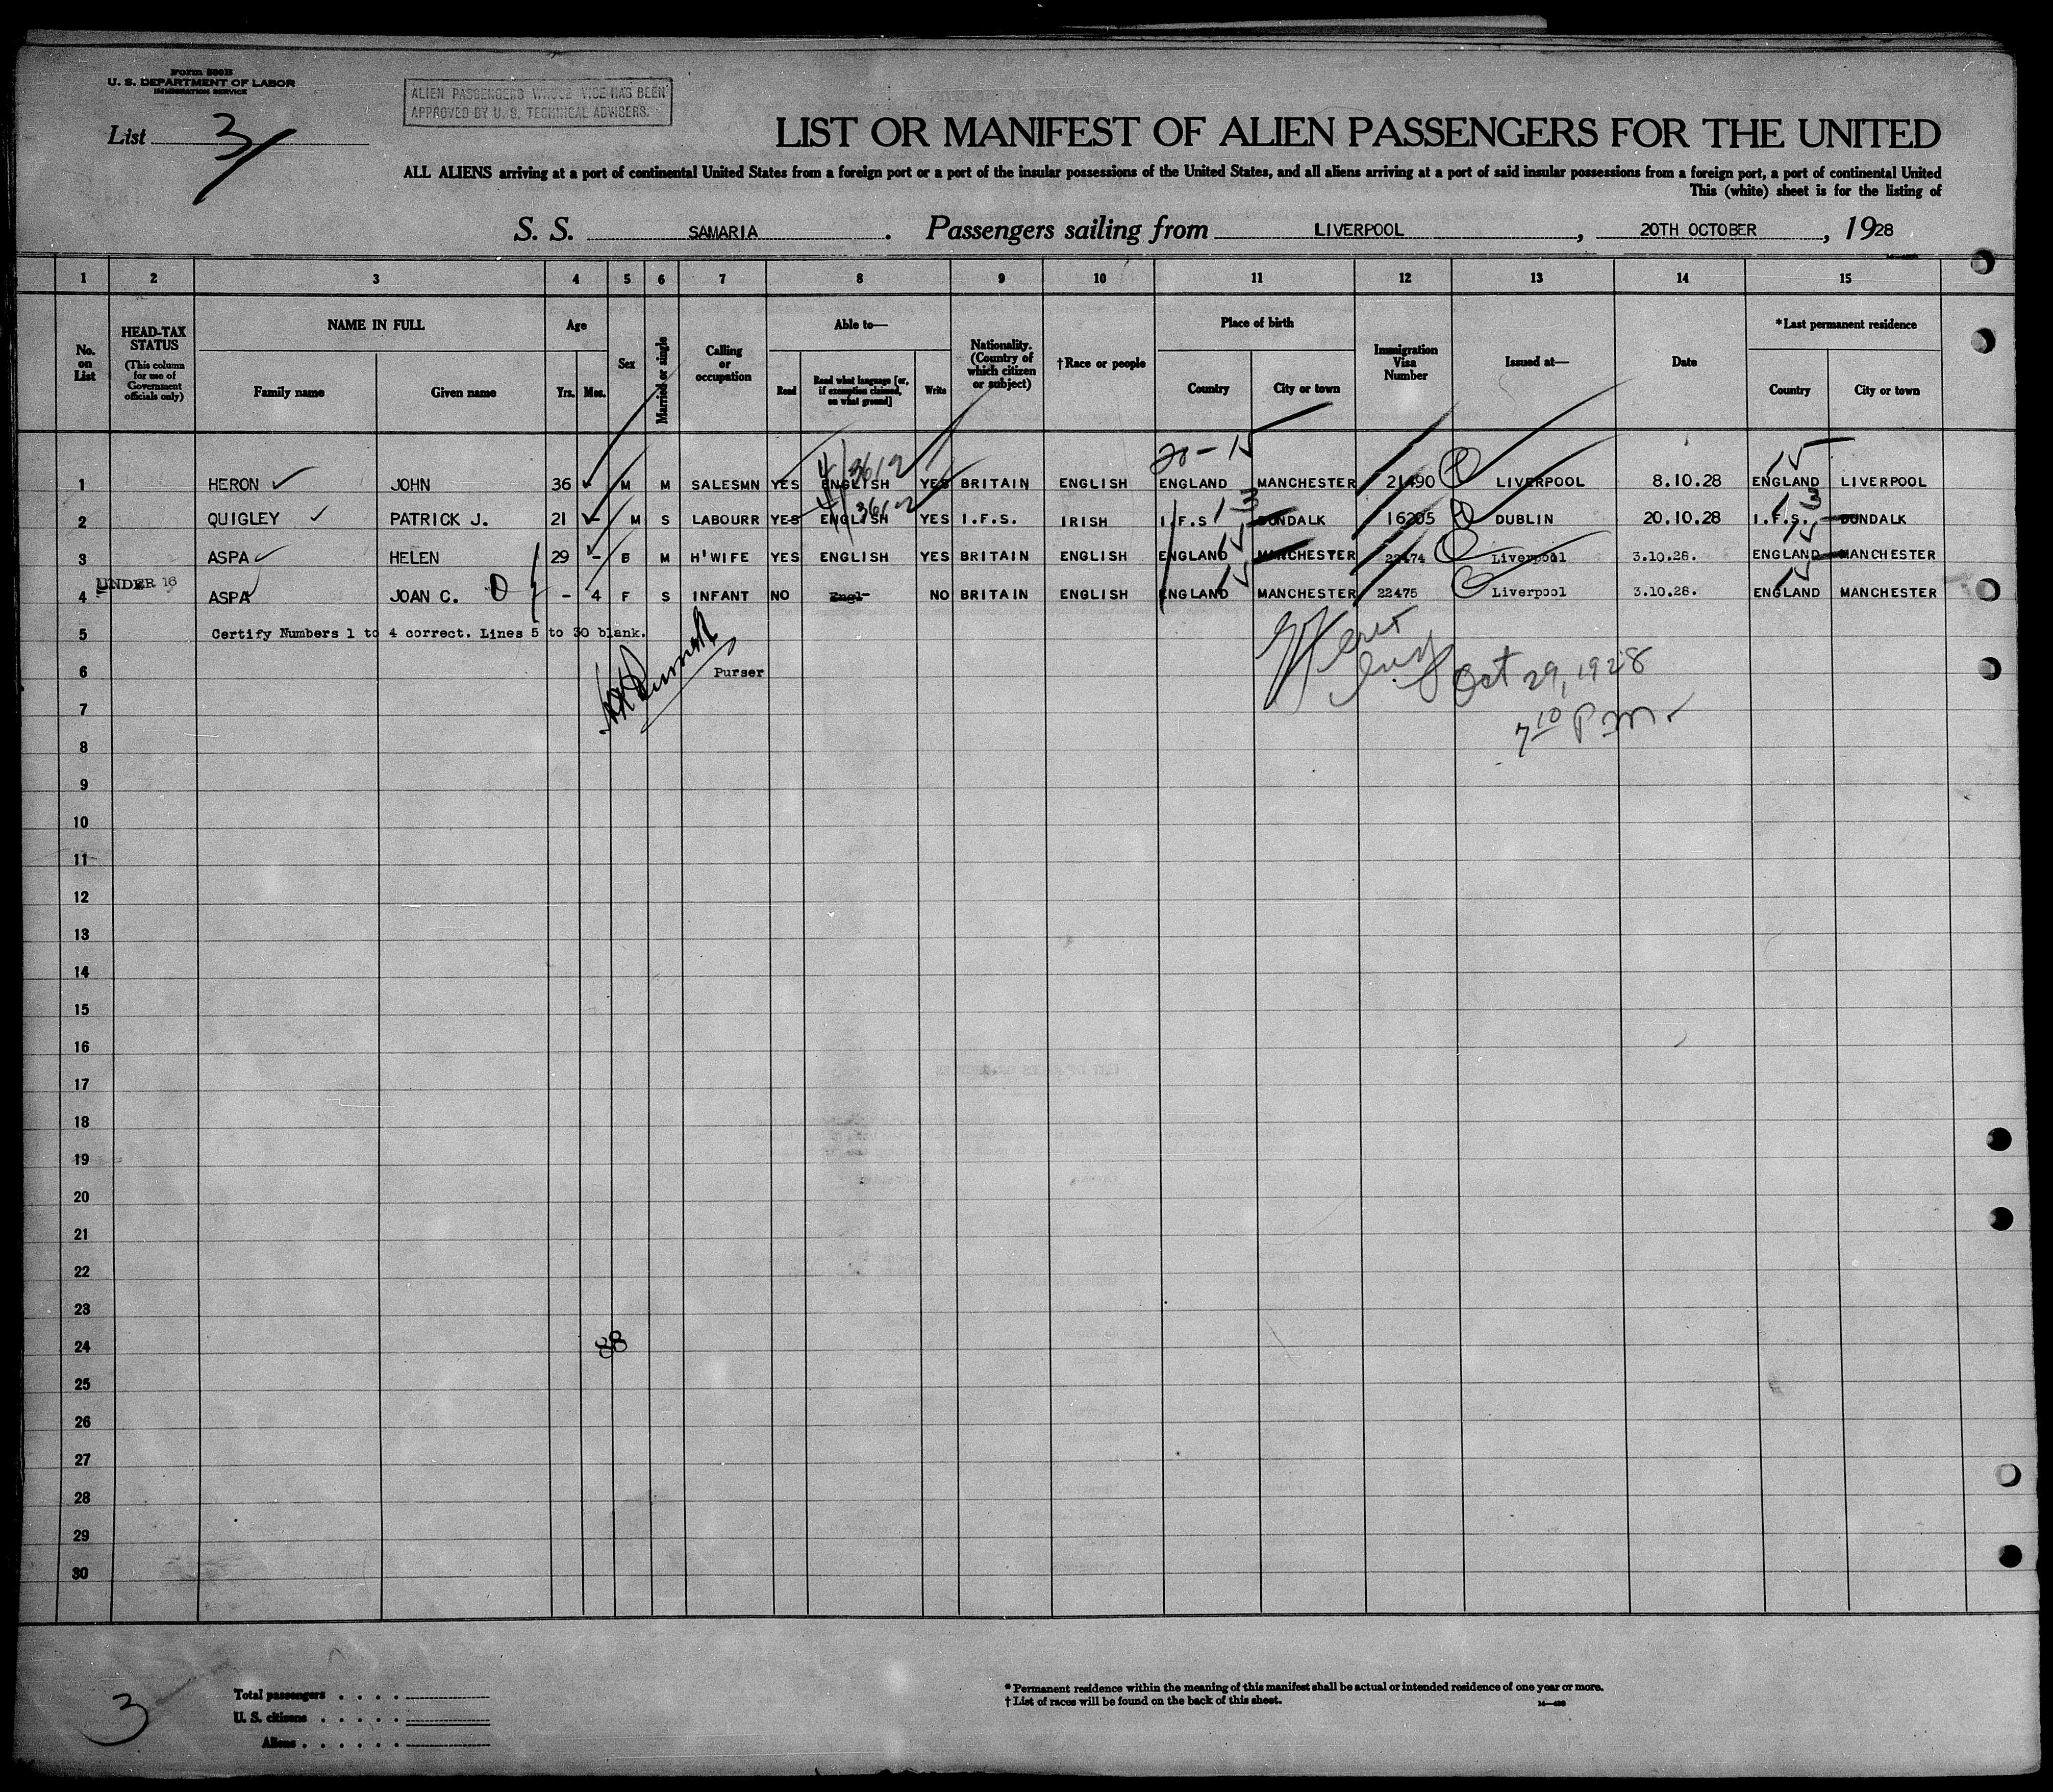 Form 500B
U. S. DEPARTMENT OF LABOR
IMMIGRATION SERVICE
ALIEN PASSENGERS WHOSE VICE HAS BEEN
APPROVED BY U. S. TECHNICAL ADVISERS.
List 3
LIST OR MANIFEST OF ALIEN PASSENGERS FOR THE UNITED
ALL ALIENS arriving at a port of continental United States from a foreign port or a port of the insular possessions of the United States, and all aliens arriving at a port of said insular possessions from a foreign port, a port of continental United
This (white) sheet is for the listing of
S. S. SAMARIA. Passengers sailing from LIVERPOOL, 20TH OCTOBER, 1928
1 2 3 4 5 6 7 8 9 10 11 12 13 14 15
No. on List
HEAD-TAX STATUS
(This column for use of Government officials only)
NAME IN FULL
Family name Given name
Age
Yrs. Mos.
Sex
Married or single
Calling or occupation
Able to—
Read Read what language [or, if exemption claimed, on what ground] Write
Nationality. (Country of which citizen or subject)
†Race or people
Place of birth
Country City or town
Immigration Visa Number
Issued at—
Date
*Last permanent residence
Country City or town
20-15 15
4/3612
1 HERON JOHN 36 M M SALESMN YES ENGLISH YES BRITAIN ENGLISH ENGLAND MANCHESTER 21490 LIVERPOOL 8.10.28 ENGLAND LIVERPOOL
2 QUIGLEY PATRICK J. 21 - M S LABOURR YES ENGLISH YES I.F.S. IRISH I.F.S DUNDALK 16205 DUBLIN 20.10.28 I.F.S. DUNDALK
3 ASPA HELEN 29 - M H'WIFE YES ENGLISH YES BRITAIN ENGLISH ENGLAND MANCHESTER 22474 Liverpool 3.10.28. ENGLAND MANCHESTER
UNDER 16
4 ASPA JOAN C. - 4 F S INFANT NO Engl- NO BRITAIN ENGLISH ENGLAND MANCHESTER 22475 Liverpool 3.10.28. ENGLAND MANCHESTER
5 Certify Numbers 1 to 4 correct. Lines 5 to 30 blank.
6 Purser
Oct 29, 1928
7
7 10 P.m.
8
9
10
11
12
13
14
15
16
17
18
19
20
21
22
23
24 88
25
26
27
28
29
30
3
Total passengers . . . .
U. S. citizens . . . . .
Aliens . . . . . .
* Permanent residence within the meaning of this manifest shall be actual or intended residence of one year or more.
† List of races will be found on the back of this sheet.